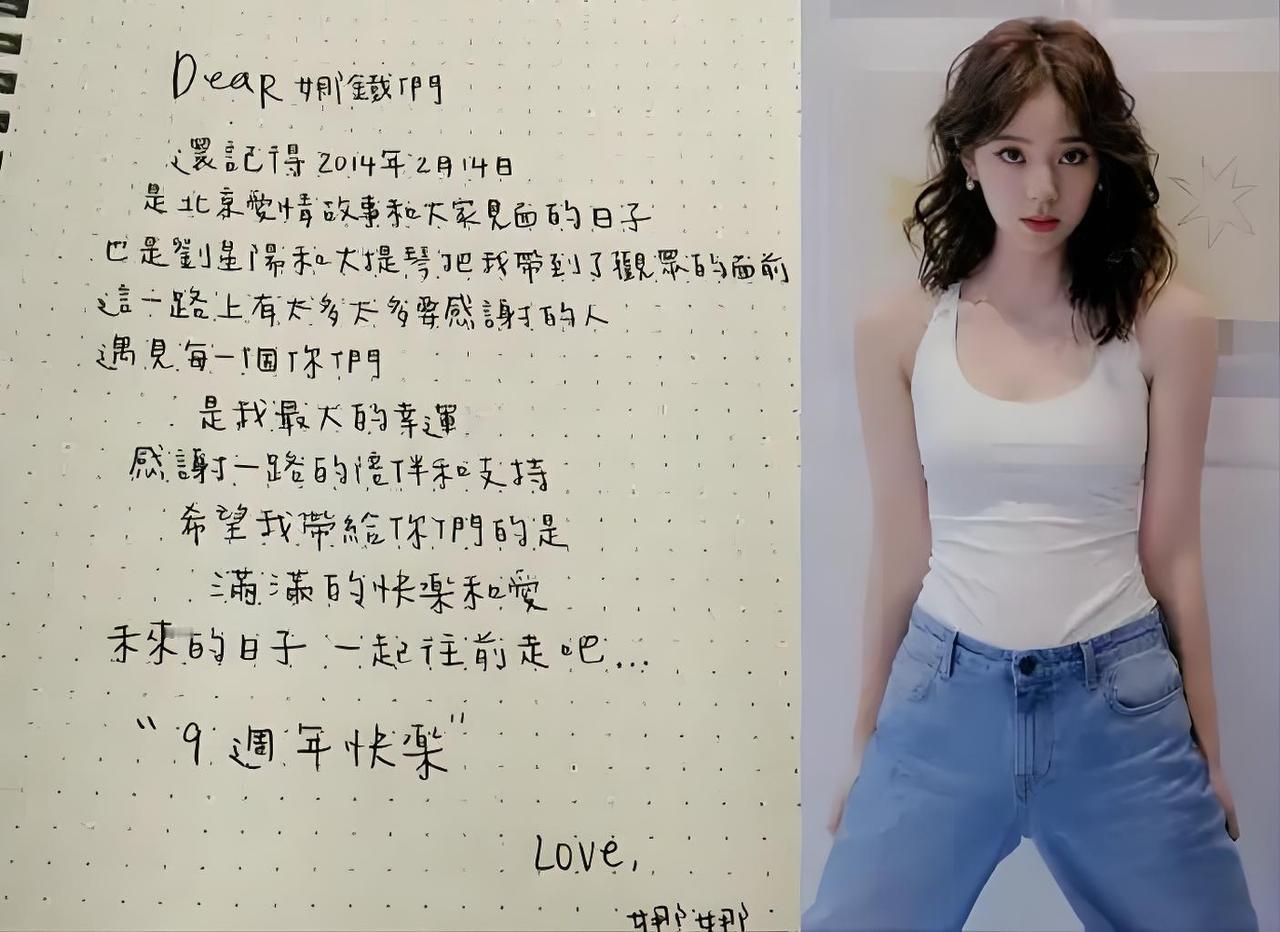 Dear 娜鐵們
還記得2014年2月14日
是北京愛情故事和大家見面的日子
也是劉星陽和大提琴把我帶到了觀眾的面前
這一路上有太多太多要感謝的人
遇見每一個你們
是我最大的幸運
感謝一路的陪伴和支持
希望我帶給你們的是
滿滿的快樂和愛
未來的日子 一起往前走吧...
"9週年快樂"
Love,
娜娜